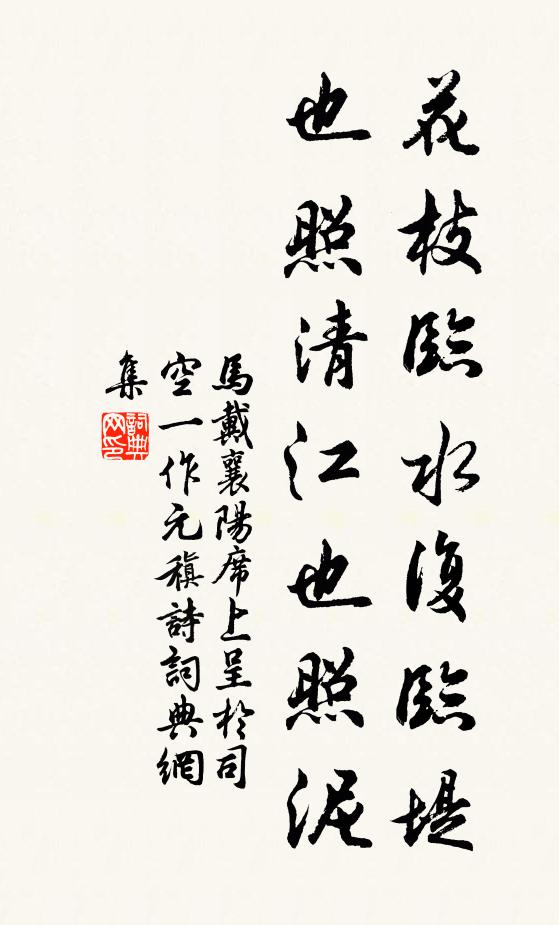 花枝臨水復臨堤
也照清江也照泥
馬戴襄陽席上呈於司
空一作元稹詩詞典網
集
詞典
网印